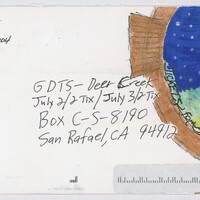 GDTS - Deer Creek
July 2/2 Tix / July 3/2 Tix
Box C-S-8190
San Rafael, CA 94912